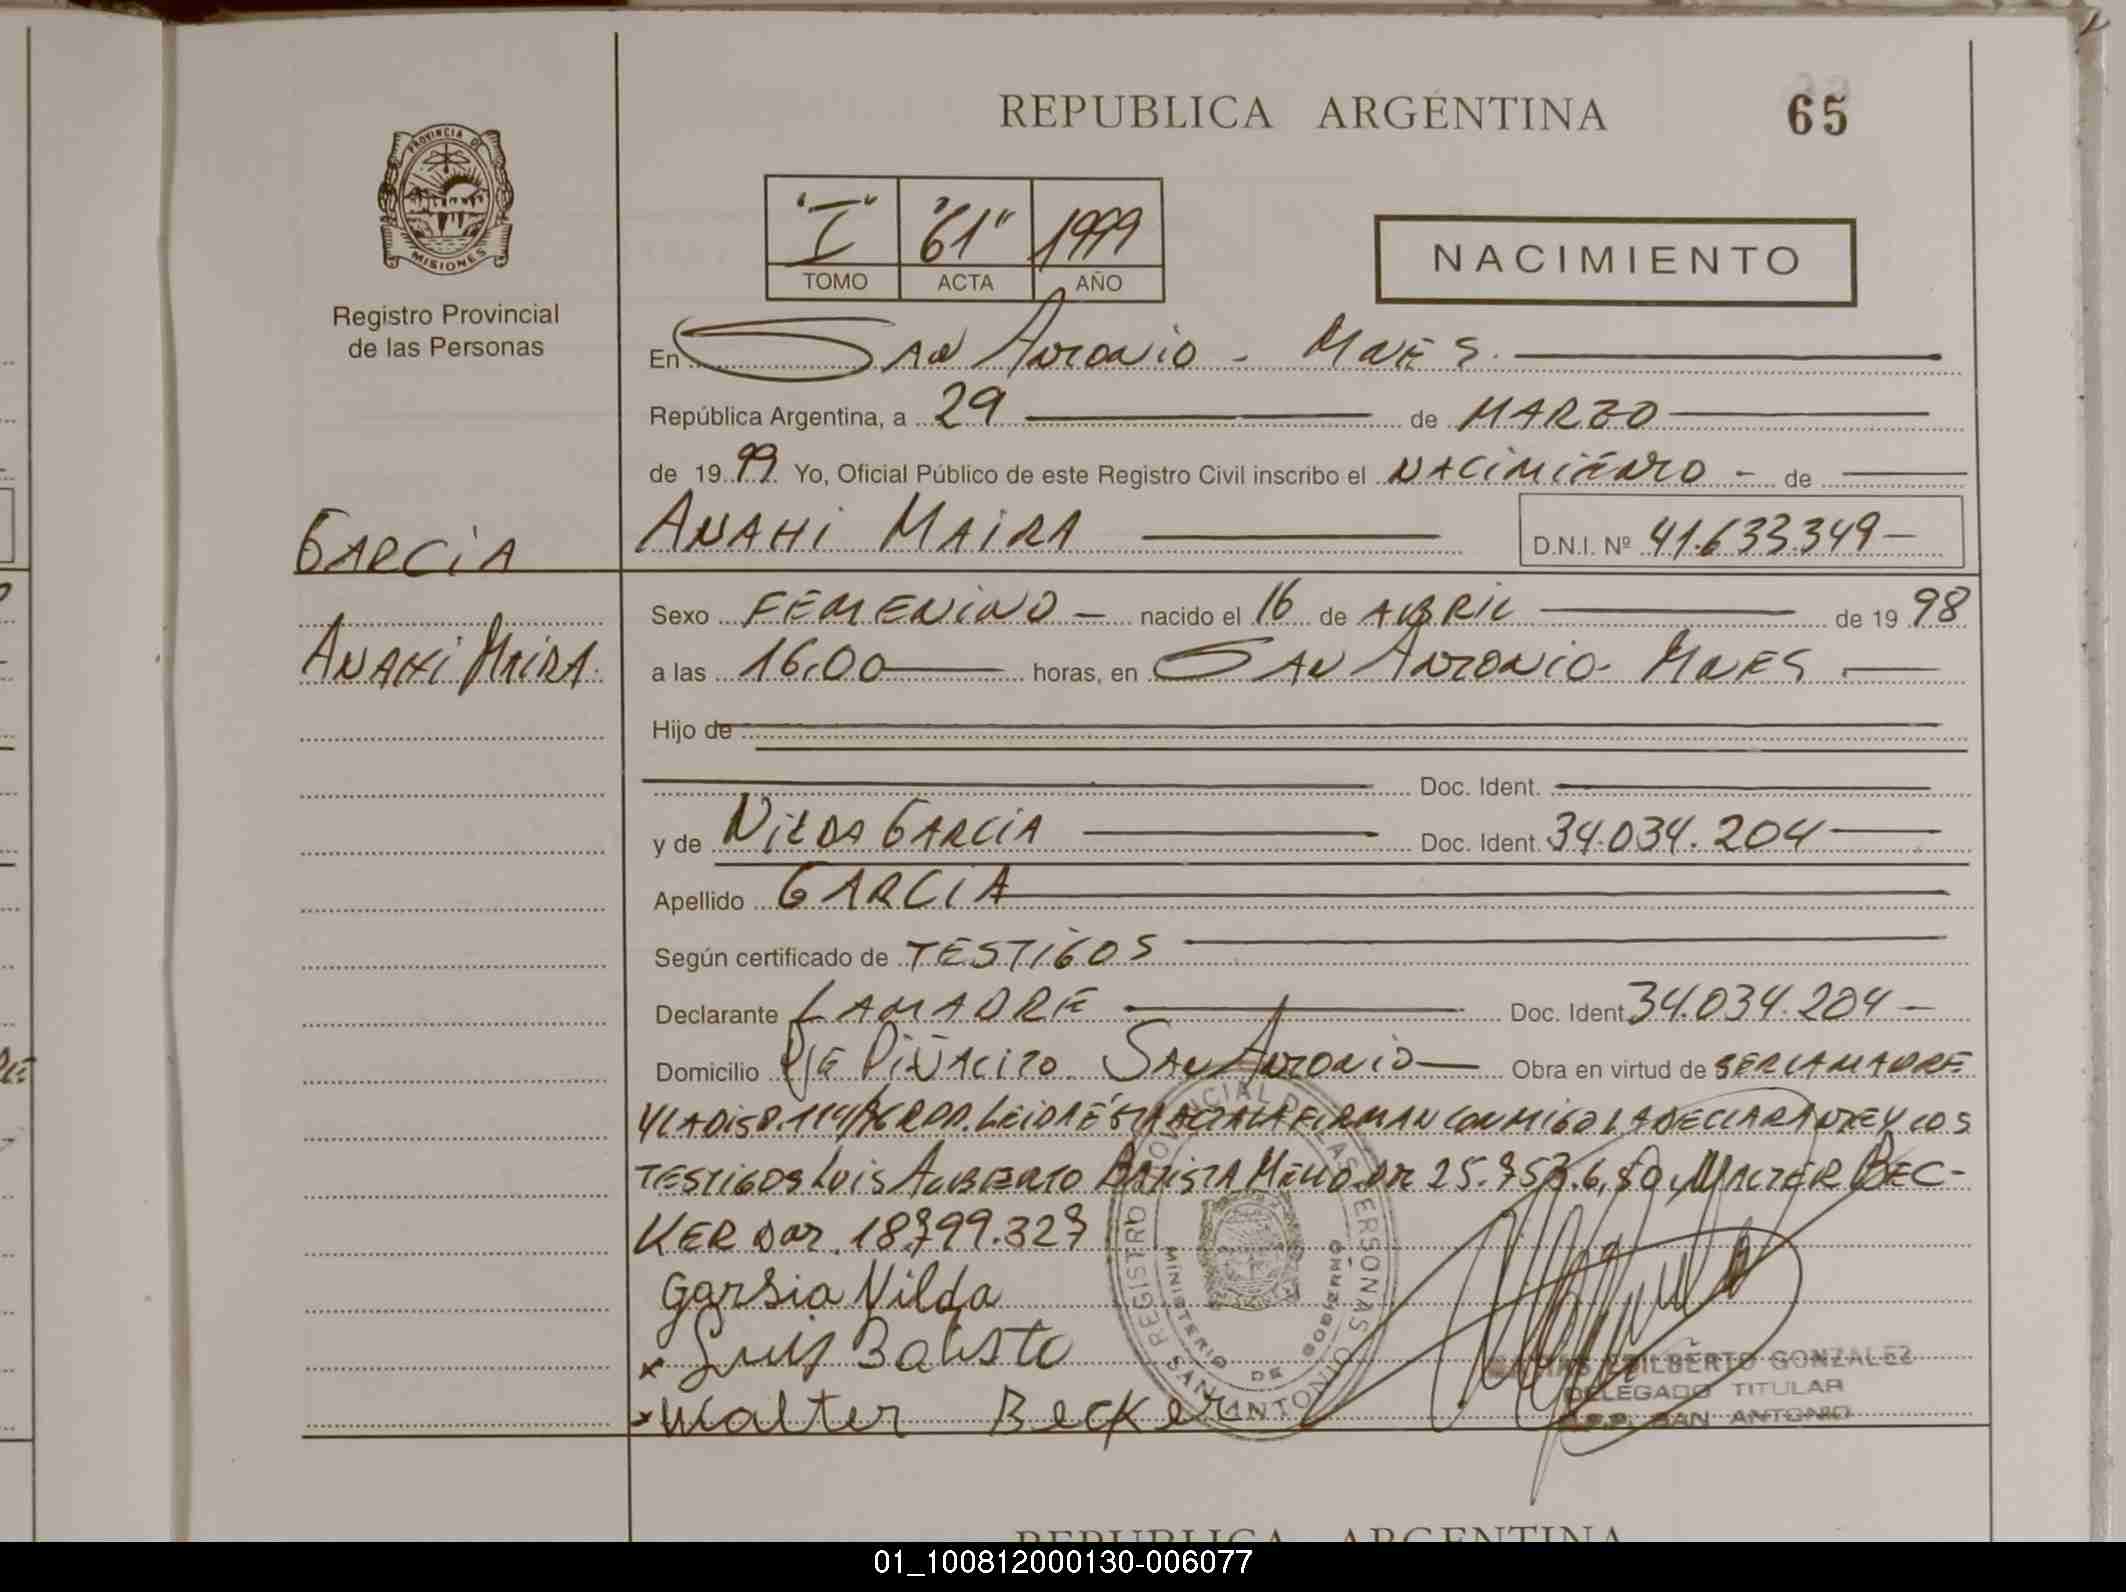 REPUBLICA ARGENTINA
65
PROVINCIA DE
MISIONES
Registro Provincial
de las Personas
"I" "61" 1999
TOMO ACTA AÑO
NACIMIENTO
En San Antonio - Mnes.
República Argentina, a 29 de MARZO
de 1999 Yo, Oficial Público de este Registro Civil inscribo el NACIMIENTO - de
GARCIA
ANAHI MAIRA
D.N.I. Nº 41.633.349-
ANAHI MAIRA.
Sexo FEMENINO - nacido el 16 de ABRIL de 1998
a las 16,00 horas, en SAN ANTONIO - MNES
Hijo de
Doc. Ident.
y de NILDA GARCIA Doc. Ident. 34.034.204
Apellido GARCIA
Según certificado de TESTIGOS
Declarante LA MADRE Doc. Ident. 34.034.204 -
Domicilio PJE PIÑALITO SAN ANTONIO Obra en virtud de SER LA MADRE
Y LA DIS. LEIDA ÉSTA ACTA LA FIRMAN CONMIGO LA DECLARANTE Y LOS
TESTIGOS LUIS ALBERTO BATISTA MELLO DNI WALTER BEC-
KER DNI. 18.799.327
Garsia Nilda
x Luis Batista
x Walter Becker
REGISTRO PROVINCIAL DE LAS PERSONAS
MINISTERIO DE GOBIERNO
SAN ANTONIO
EDILBERTO GONZALEZ
DELEGADO TITULAR
SAN ANTONIO
REPUBLICA ARGENTINA
01_100812000130-006077